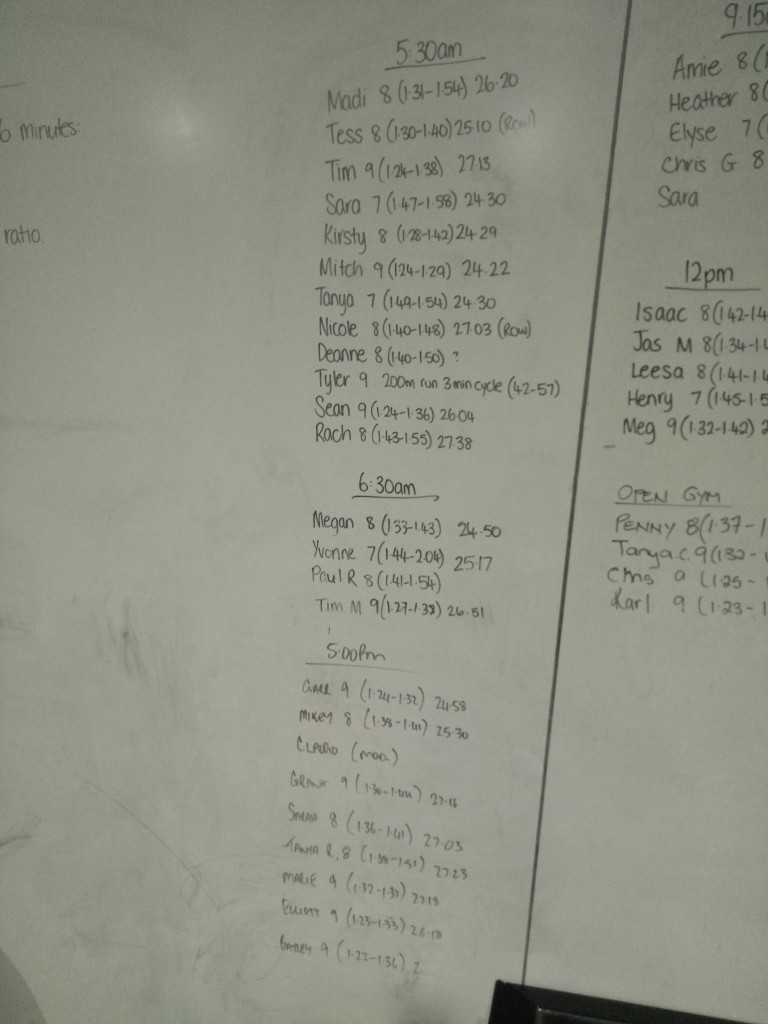 6 minutes:
ratio.
5:30am
Madi 8 (1:31-1:54) 26.20
Tess 8 (1:30-1:40) 25.10 (Row)
Tim 9 (1.24-1.38) 27.13
Sara 7 (1.47-1.58) 24.30
Kirsty 8 (1.28-1.42) 24.29
Mitch 9 (1.24-1.29) 24.22
Tanya 7 (1.49-1.54) 24.30
Nicole 8 (1.40-1.48) 27.03 (Row)
Deanne 8 (1.40-1.50) ?
Tyler 9 200m run 3min cycle (42-57)
Sean 9 (1.24-1.36) 26.04
Rach 8 (1.43-1.55) 27.38
6:30am
Megan 8 (1.33-1.43) 24.50
Yvonne 7 (1.44-2.04) 25.17
Paul R 8 (1.41-1.54)
Tim M 9 (1.27-1.38) 26.51
5:00Pm
9 (1.24-1.32) 24.58
MIKEY 8 (1.38-1.41) 25.30
CLAUDIO
GRANT 9 27.16
8 (1.36-1.41) 27.03
TANYA R. 8 27.23
MARIE 9 (1.32-1.37) 27.18
ELLIOTT 9 (1.23-1.33) 26.18
9 (1.22-1.36) ?
9.15
Amie 8 (
Heather 8 (
Elyse 7 (
Chris G 8
Sara
12pm
Isaac 8 (1.42-1.4
Jas M 8 (1.34-1.
Leesa 8 (1.41-1.4
Henry 7 (1.45-1.5
Meg 9 (1.32-1.42) 2
OPEN GYM
PENNY 8 (1.37-1
Tanya C. 9 (1.32-
Chris 9 (1.25-
Karl 9 (1.23-1